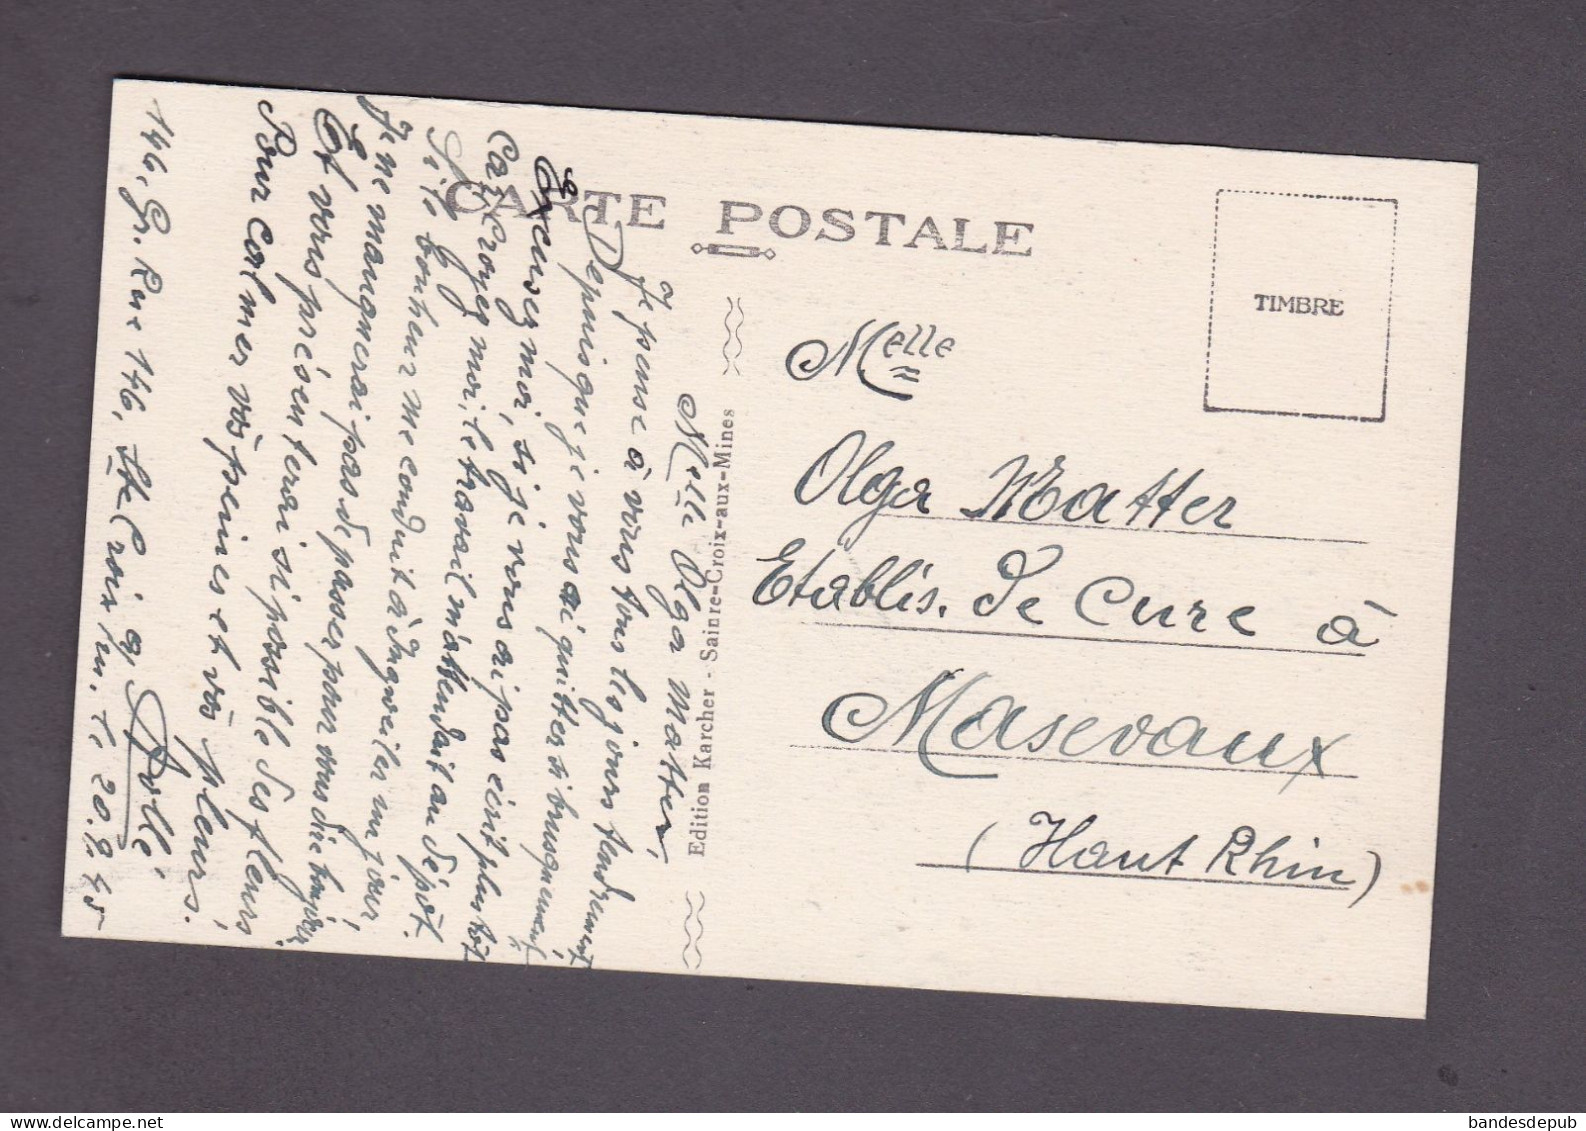 CARTE POSTALE
TIMBRE
Melle
Olga Matter
Etablis. de Cure à
Masevaux
(Haut Rhin)
Edition Karcher - Sainte-Croix-aux-Mines
Melle Olga Matter,
Je pense à vous tous les jours tendrement
Depuis que je vous ai quitter si brusquement,
Excusez moi, si je vous ai pas écrit plus tôt
Car croyez moi, le travail m'attendait au dépôt.
Si le bonheur me conduit à Ingwiller un jour,
Je ne manquerai pas de passer pour vous dire bonjour
Et vous présenterai si possible des fleurs
Pour calmer vos peines et vos pleurs.
Dollé
146, Gr. Rue 146, Ste Croix a/ m. le 20.9.45
bandesdepub